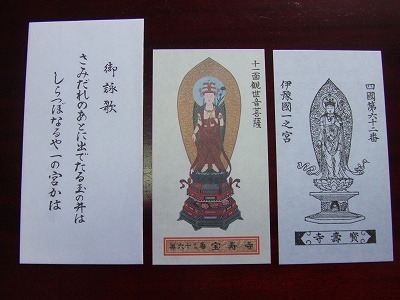 御詠歌
さみだれのあとに出でたる玉の井は
しらつぼなるや一の宮かは
十一面観世音菩薩
第六十二番 宝寿寺
四國第六十二番
伊豫國一之宮
寶壽寺